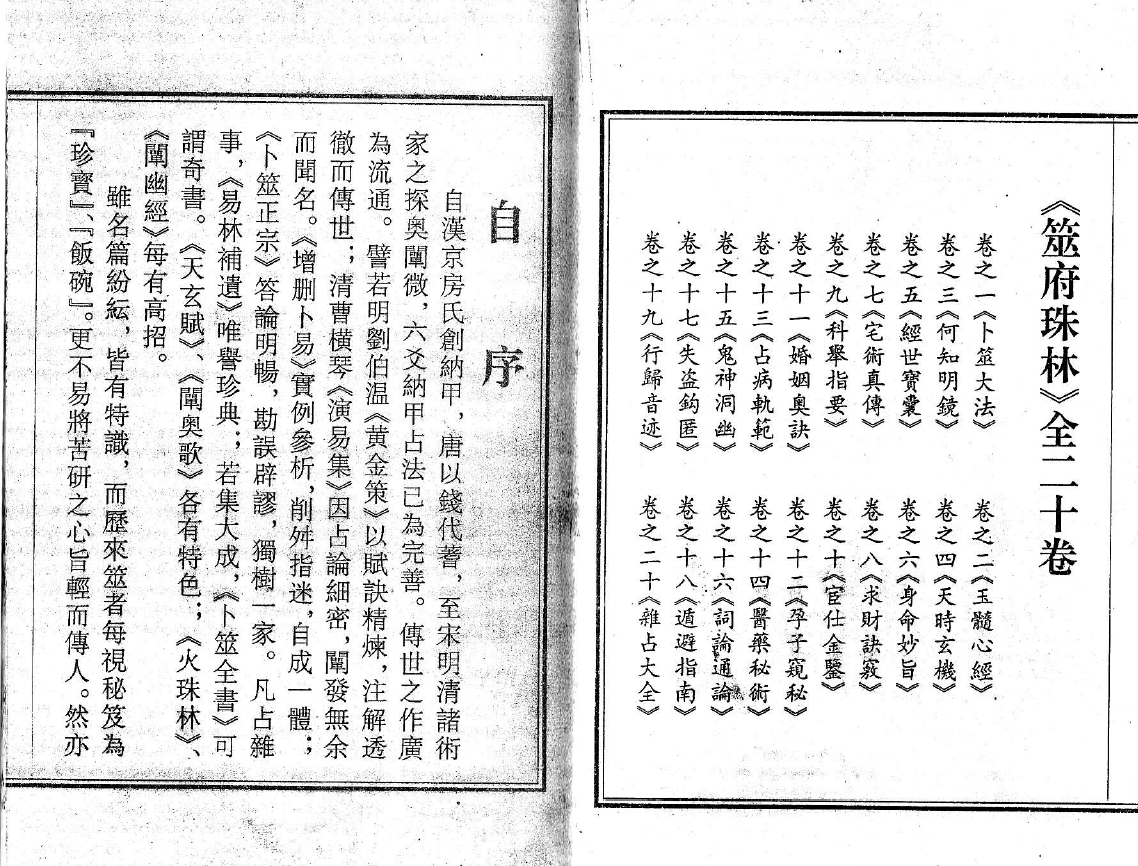 《筮府珠林》全二十卷
卷之一《卜筮大法》
卷之二《玉髓心經》
卷之三《何知明鏡》
卷之四《天時玄機》
卷之五《經世寶囊》
卷之六《身命妙旨》
卷之七《宅術真傳》
卷之八《求財訣竅》
卷之九《科舉指要》
卷之十《宦仕金鑒》
卷之十一《婚姻奧訣》
卷之十二《孕子窺秘》
卷之十三《占病軌範》
卷之十四《醫藥秘術》
卷之十五《鬼神洞幽》
卷之十六《詞論通論》
卷之十七《失盜鈎匿》
卷之十八《遁避指南》
卷之十九《行歸音迹》
卷之二十《雜占大全》
自序
自漢京房氏創納甲，唐以錢代蓍，至宋明清諸術
家之探奥闡微，六爻納甲占法已為完善。傳世之作廣
為流通。譬若明劉伯温《黄金策》以賦訣精煉，注解透
徹而傳世；清曹橫琴《演易集》因占論細密，闡發無余
而聞名。《增删卜易》實例參析，削舛指迷，自成一體；
《卜筮正宗》答論明暢，勘誤辟謬，獨樹一家。凡占雜
事，《易林補遺》唯譽珍典；若集大成，《卜筮全書》可
謂奇書。《天玄賦》、《闡奥歌》各有特色；《火珠林》、
《闡幽經》每有高招。
雖名篇紛紜，皆有特識，而歷來筮者每視秘笈為
『珍寶』、『飯碗』。更不易將苦研之心旨輕而傳人。然亦